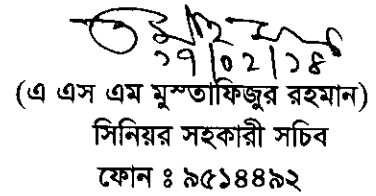 ১৭/০২/১৪
(এ এস এম মুস্তাফিজুর রহমান)
সিনিয়র সহকারী সচিব
ফোন ঃ ৯৫১৪৪৯২